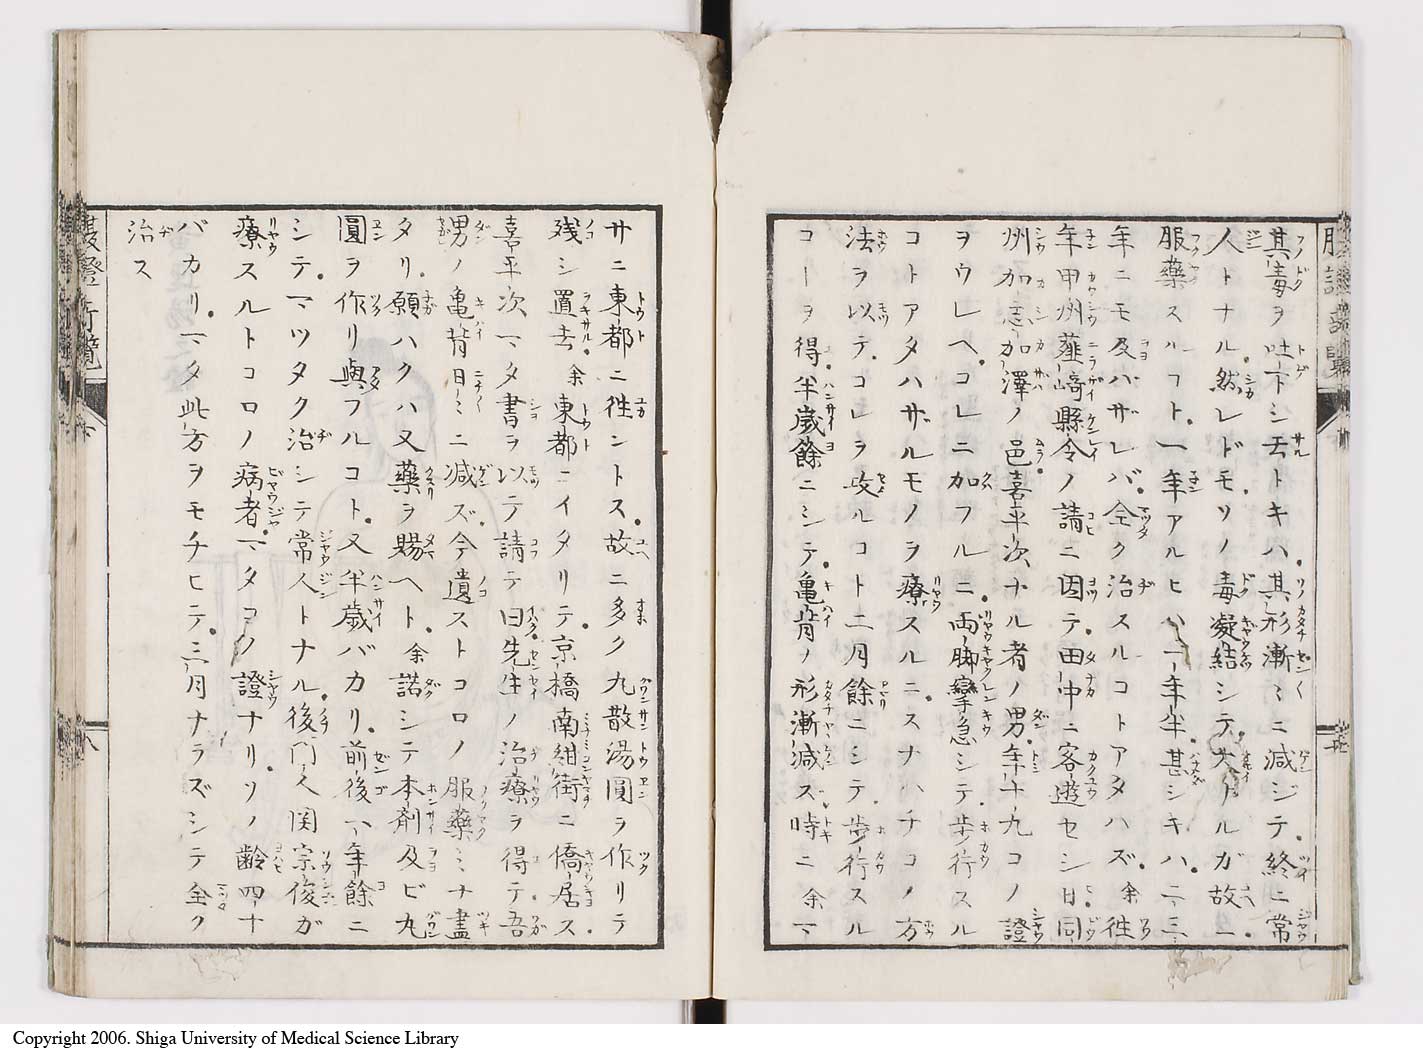 其毒ヲ吐下シ去トキハ其形漸〻ニ減ジテ終ニ常
人トナル然レドモソノ毒凝結シテ大ナルガ故ニ
服藥スルフト一年アルヒハ一年半甚シキハ二三
年ニモ及バザレバ全ク治スルコトアタハズ余往
年甲州韮﨑縣令ノ請ニ因テ田中ニ客遊セシ日同
州加志加澤ノ邑喜平次ナル者ノ男年十九コノ證
ヲウレヘコレニ加フルニ両脚攣急シテ歩行スル
コトアタハザルモノヲ療スルニスナハチコノ方
法ヲ以テコレヲ攻ルコト二月餘ニシテ歩行スル
コーヲ得半歲餘ニシテ亀背ノ形漸減ス時ニ余マ
サニ東都ニ徃ントス故ニ多ク丸散湯圓ヲ作リテ
残シ置去余東都ニイタリテ京橋南紺街ニ僑居ス
喜平次マタ書ヲ以テ請テ曰先生ノ治療ヲ得テ吾
男ノ亀背日〻ニ減ズ今遺ストコロノ服藥ミナ盡
タリ願ハクハ又藥ヲ賜ヘト余諾シテ本剤及ビ丸
圓ヲ作リ與フルコト又半歳バカリ前後一年餘ニ
シテマツタク治シテ常人トナル後門人関宗俊ガ
療スルトコロノ病者マタコノ證ナリソノ齢四十
バカリマタ此方ヲモチヒテ三月ナラズシテ全ク
治ス
八
Copyright 2006. Shiga University of Medical Science Library